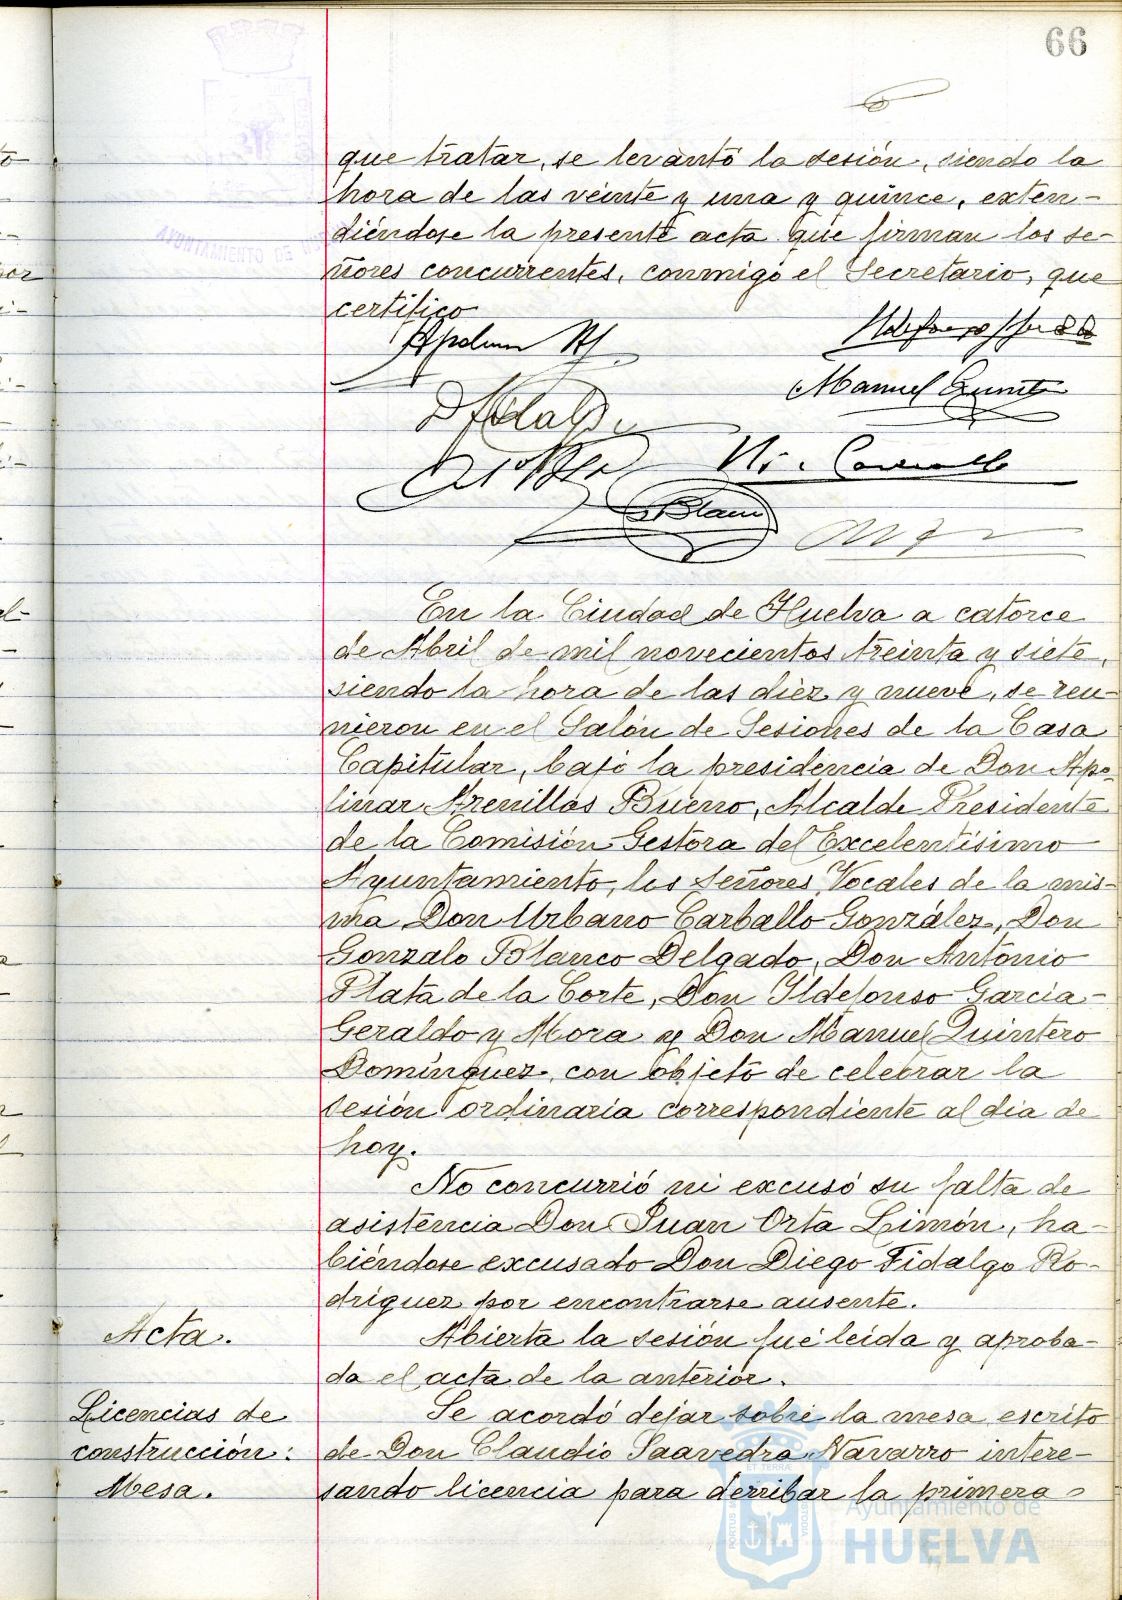 66
que tratar, se levantó la sesión, siendo la
hora de las veinte y una y quince, exten-
diéndose la presente acta que firman los se-
ñores concurrentes, conmigo el Secretario, que
certifico
Manuel Quintero
Blanco
En la Ciudad de Huelva a catorce
de Abril de mil novecientos treinta y siete,
siendo la hora de las diez y nueve, se reu-
nieron en el Salón de Sesiones de la Casa
Capitular, bajo la presidencia de Don Apo-
linar Arenillas Bueno, Alcalde Presidente
de la Comisión Gestora del Excelentísimo
Ayuntamiento, los Señores Vocales de la mis-
ma Don Urbano Carballo González, Don
Gonzalo Blanco Delgado, Don Antonio
Plata de la Corte, Don Ildefonso García-
Geraldo y Mora y Don Manuel Quintero
Domínguez, con objeto de celebrar la
sesión ordinaria correspondiente al dia de
hoy.
No concurrió ni excusó su falta de
asistencia Don Juan Orta Limón, ha-
biéndose excusado Don Diego Fidalgo Ro-
driguez por encontrarse ausente.
Acta. Abierta la sesión fué leida y aproba-
da el acta de la anterior.
Licencias de Se acordó dejar sobre la mesa escrito
construcción: de Don Claudio Saavedra Navarro intere-
Mesa. sando licencia para derribar la primera
Ayuntamiento de
HUELVA